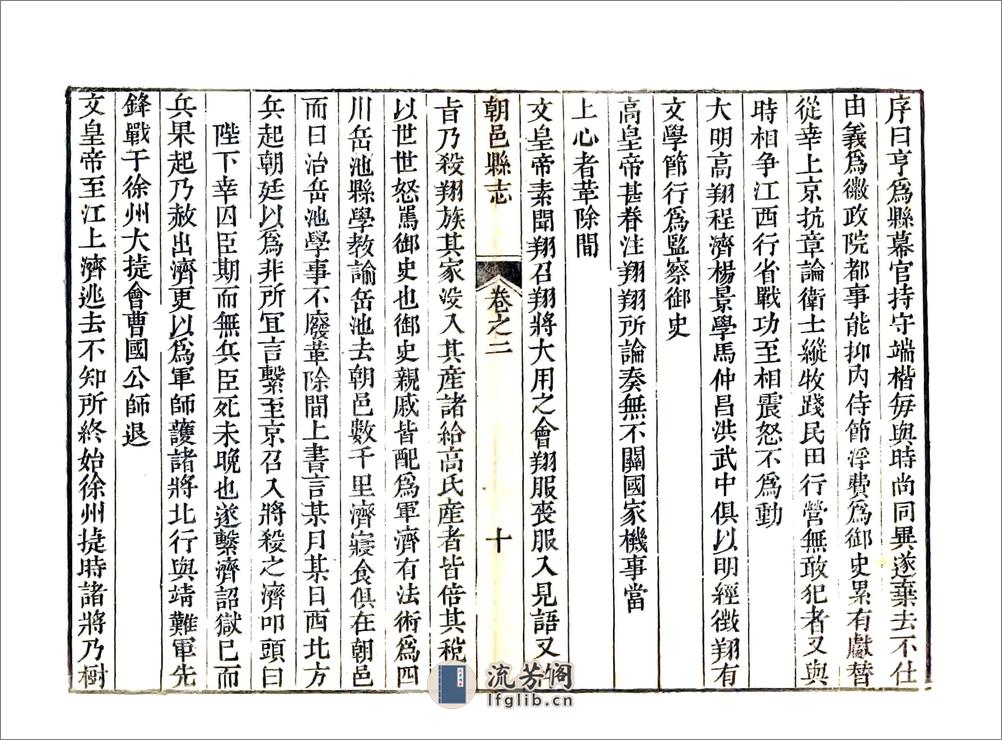 序曰亨爲縣幕官持守端楷每與時尚同異遂棄去不仕
由義爲徽政院都事能抑內侍節浮費爲御史累有獻替
從幸上京抗章論衛士縱牧踐民田行營無敢犯者又與
時相争江西行省戰功至相震怒不爲動
大明高翔程濟楊景學馬仲昌洪武中俱以明經徵翔有
文學節行爲監察御史
高皇帝甚眷注翔翔所論奏無不關國家機事當
上心者革除間
文皇帝素聞翔召翔將大用之會翔服喪服入見語又
朝邑縣志
卷之二
十
㫖乃殺翔族其家没入其産諸給高氏産者皆倍其稅
以世世怒罵御史也御史親戚皆配爲軍濟有法術爲四
川岳池縣學教諭岳池去朝邑數千里濟寢食俱在朝邑
而日治岳池學事不廢革除間上書言某月某日西北方
兵起朝廷以爲非所冝言繫至京召入將殺之濟叩頭曰
陛下幸囚臣期而無兵臣死未晩也遂繫濟詔獄巳而
兵果起乃赦出濟更以爲軍師護諸將北行與靖難軍先
鋒戰于徐州大㨗會曹國公師退
文皇帝至江上濟逃去不知所終始徐州㨗時諸將乃樹
流芳阁
lfglib.cn